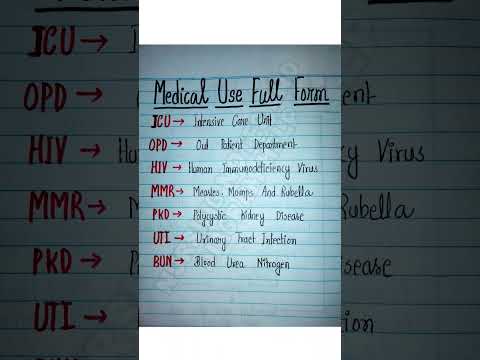 Medical Use Full Form
ICU → Intensive Care Unit
OPD → Out Patient Department
HIV → Human Immunodeficiency Virus
MMR → Measles, Momps And Rubella
PKD → Polycystic Kidney Disease
UTI → Urinary Tract Infection
BUN → Blood Urea Nitrogen
ICU →
OPD →
HIV →
Virus
MMR →
Rubella
PKD →
UTI →